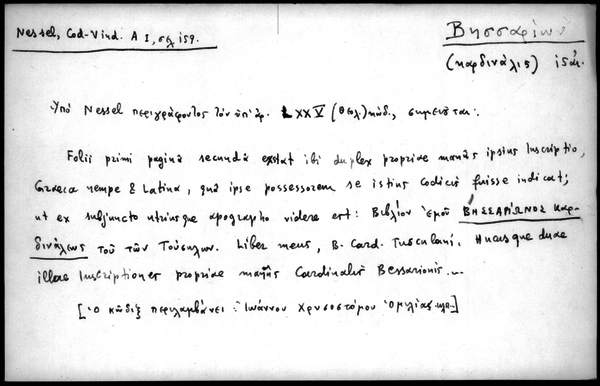 Nessel, Cod-Vind. A I, σελ 159.
Βησσαρίων
(καρδινάλις)
Ὑπὸ Nessel περιγράφοντος τὸν ὑπ' ἀρ. LXXV (Θεολ.) κώδ., σημειοῦται:
Folii primi pagina secunda exstat ibi duplex propriae manûs ipsius Inscriptio,
Graeca nempe & Latina, quâ ipse possessorem se istius Codicis fuisse indicat;
ut ex subjuncto utriusque apographo videre est: Βιβλίον ἐμοῦ ΒΗΣΣΑΡΙΩΝΟΣ καρ-
δινάλεως τοῦ τῶν Τούσκλων. Liber meus, B. Card. Tusculani. Hucusque duae
illae Inscriptiones propriae manûs Cardinalis Bessarionis...
[Ὁ κῶδιξ περιλαμβάνει: Ἰωάννου Χρυσοστόμου Ὁμιλίας κλπ.]